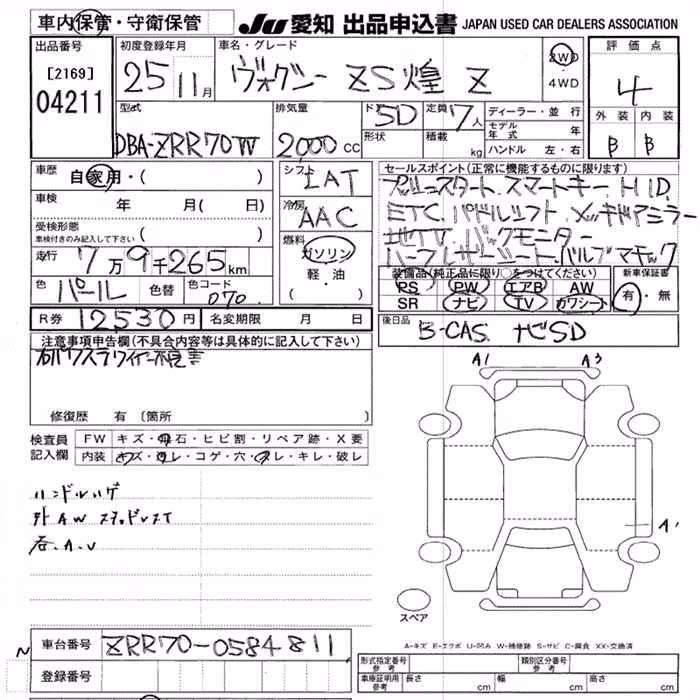 車内保管・守衛保管 JU 愛知 出品申込書 JAPAN USED CAR DEALERS ASSOCIATION
出品番号 [2169] 04211
初度登録年月 25 11月
車名・グレード ヴォクシー ZS煌 Z
2WD ・ 4WD
評価点 4
外装 内装
B B
型式 DBA-ZRR70W
排気量 2000 CC
ドア 5D 形状
定員 7人 積載 kg
ディーラー・並行
モデル年式 年
ハンドル 左・右
車歴 自家用・( )
車検 年 月( 日)
受検形態 車検付きのみ記入して下さい ( )
走行 7万9千265km
色 パール 色替 色コード 070
シフト IAT
冷房 AAC
燃料 ガソリン 軽・油
セールスポイント(正常に機能するものに限ります)
プッシュスタート.スマートキー.HID.
ETC.パドルシフト.
地デジTV.バックモニター
ハーフレザーシート.
装備品(純正品に限り○をつけてください)
PS PW エアB AW
SR ナビ TV カワシート
新車保証書 有・無
R券 12530円 名変期限 月 日
後日品 B-CAS. ナビSD
注意事項申告欄(不具合内容等は具体的に記入して下さい)
修復歴 有 〔箇所 〕
検査員記入欄
FW キズ・飛石・ヒビ割・リペア跡・X要
内装 キズ・汚レ・コゲ・穴・スレ・キレ・破レ
ハンドルハゲ
外AW スタッドレス
A1 A3
A1
スペア
A-キズ E-エクボ U-凹み W-補修跡 S-サビ C-腐食 XX-交換済
N
車台番号 ZRR70-0584811
登録番号
形式指定番号 参考 類別区分番号 参考
車庫証明用 参考 長さ cm 幅 cm 高さ cm